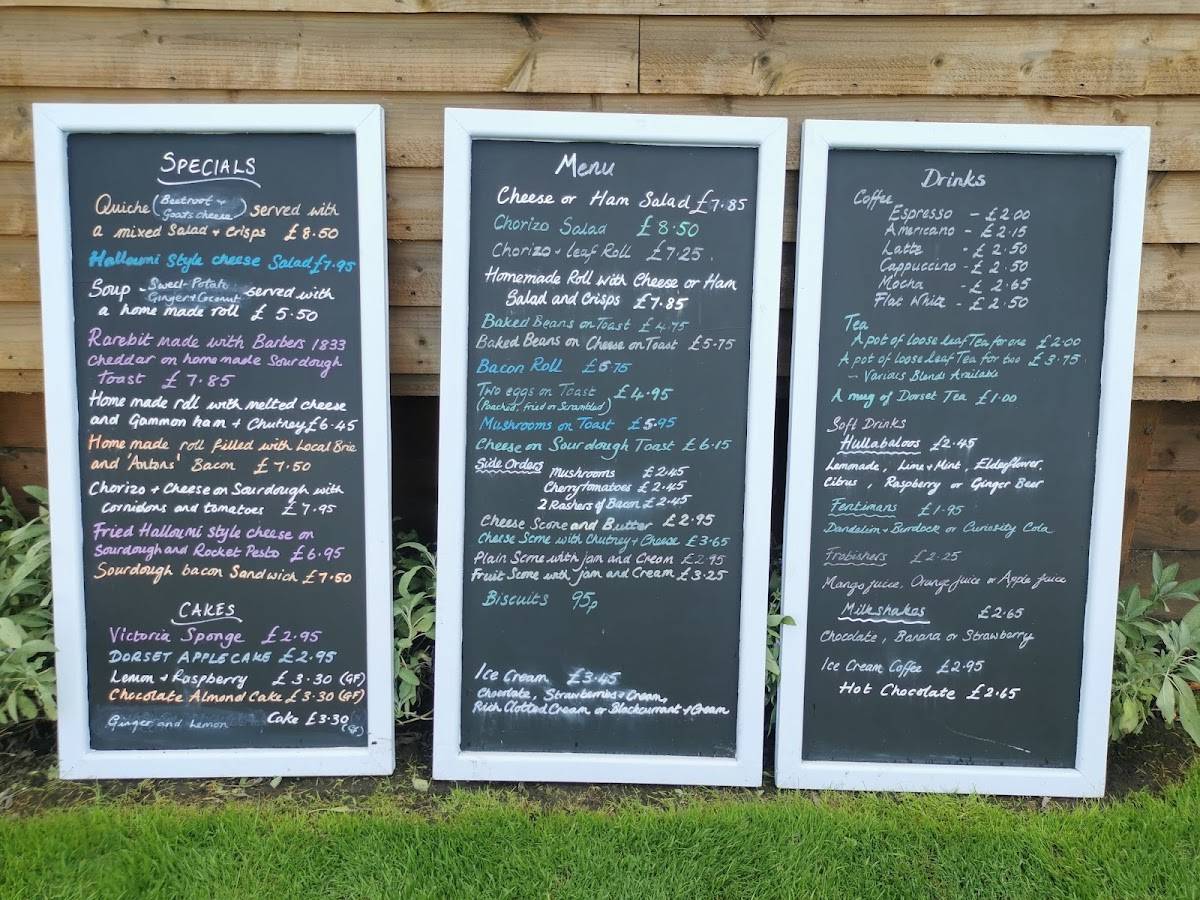 SPECIALS
Quiche (Beetroot + Goats cheese) served with
a mixed Salad + crisps £8.50
Halloumi Style cheese Salad £7.95
Soup - Sweet Potato Ginger + Coconut served with
a home made roll £5.50
Rarebit made with Barbers 1833
cheddar on home made Sourdough
Toast £7.85
Home made roll with melted cheese
and Gammon ham + Chutney £6.45
Home made roll filled with Local Brie
and 'Antons' Bacon £7.50
Chorizo + Cheese on Sourdough with
cornidons and tomatoes £7.95
Fried Halloumi Style cheese on
Sourdough and Rocket Pesto £6.95
Sourdough bacon Sandwich £7.50
CAKES
Victoria Sponge £2.95
DORSET APPLE CAKE £2.95
Lemon + Raspberry £3.30 (GF)
Chocolate Almond Cake £3.30 (GF)
Ginger and Lemon Cake £3.30 (GF)
Menu
Cheese or Ham Salad £7.85
Chorizo Salad £8.50
Chorizo + leaf Roll £7.25
Homemade Roll with Cheese or Ham
Salad and Crisps £7.85
Baked Beans on Toast £4.75
Baked Beans on Cheese on Toast £5.75
Bacon Roll £6.75
Two eggs on Toast £4.95
(Poached, fried or Scrambled)
Mushrooms on Toast £5.95
Cheese on Sourdough Toast £6.15
Side Orders Mushrooms £2.45
Cherry tomatoes £2.45
2 Rashers of Bacon £2.45
Cheese Scone and Butter £2.95
Cheese Scone with Chutney + Cheese £3.65
Plain Scone with jam and Cream £2.95
Fruit Scone with jam and Cream £3.25
Biscuits 95p
Ice Cream £3.45
Chocolate, Strawberries + Cream,
Rich Clotted Cream or Blackcurrant + Cream
Drinks
Coffee
Espresso - £2.00
Americano - £2.15
Latte - £2.50
Cappuccino - £2.50
Mocha - £2.65
Flat White - £2.50
Tea
A pot of loose leaf Tea for one £2.00
A pot of loose leaf Tea for two £3.75
- Various Blends Available
A mug of Dorset Tea £1.00
Soft Drinks
Hullabaloos £2.45
Lemonade, Lime + Mint, Elderflower,
Citrus, Raspberry or Ginger Beer
Fentimans £1.95
Dandelion + Burdock or Curiosity Cola
Frobishers £2.25
Mango juice, Orange juice or Apple juice
Milkshakes £2.65
Chocolate, Banana or Strawberry
Ice Cream Coffee £2.95
Hot Chocolate £2.65